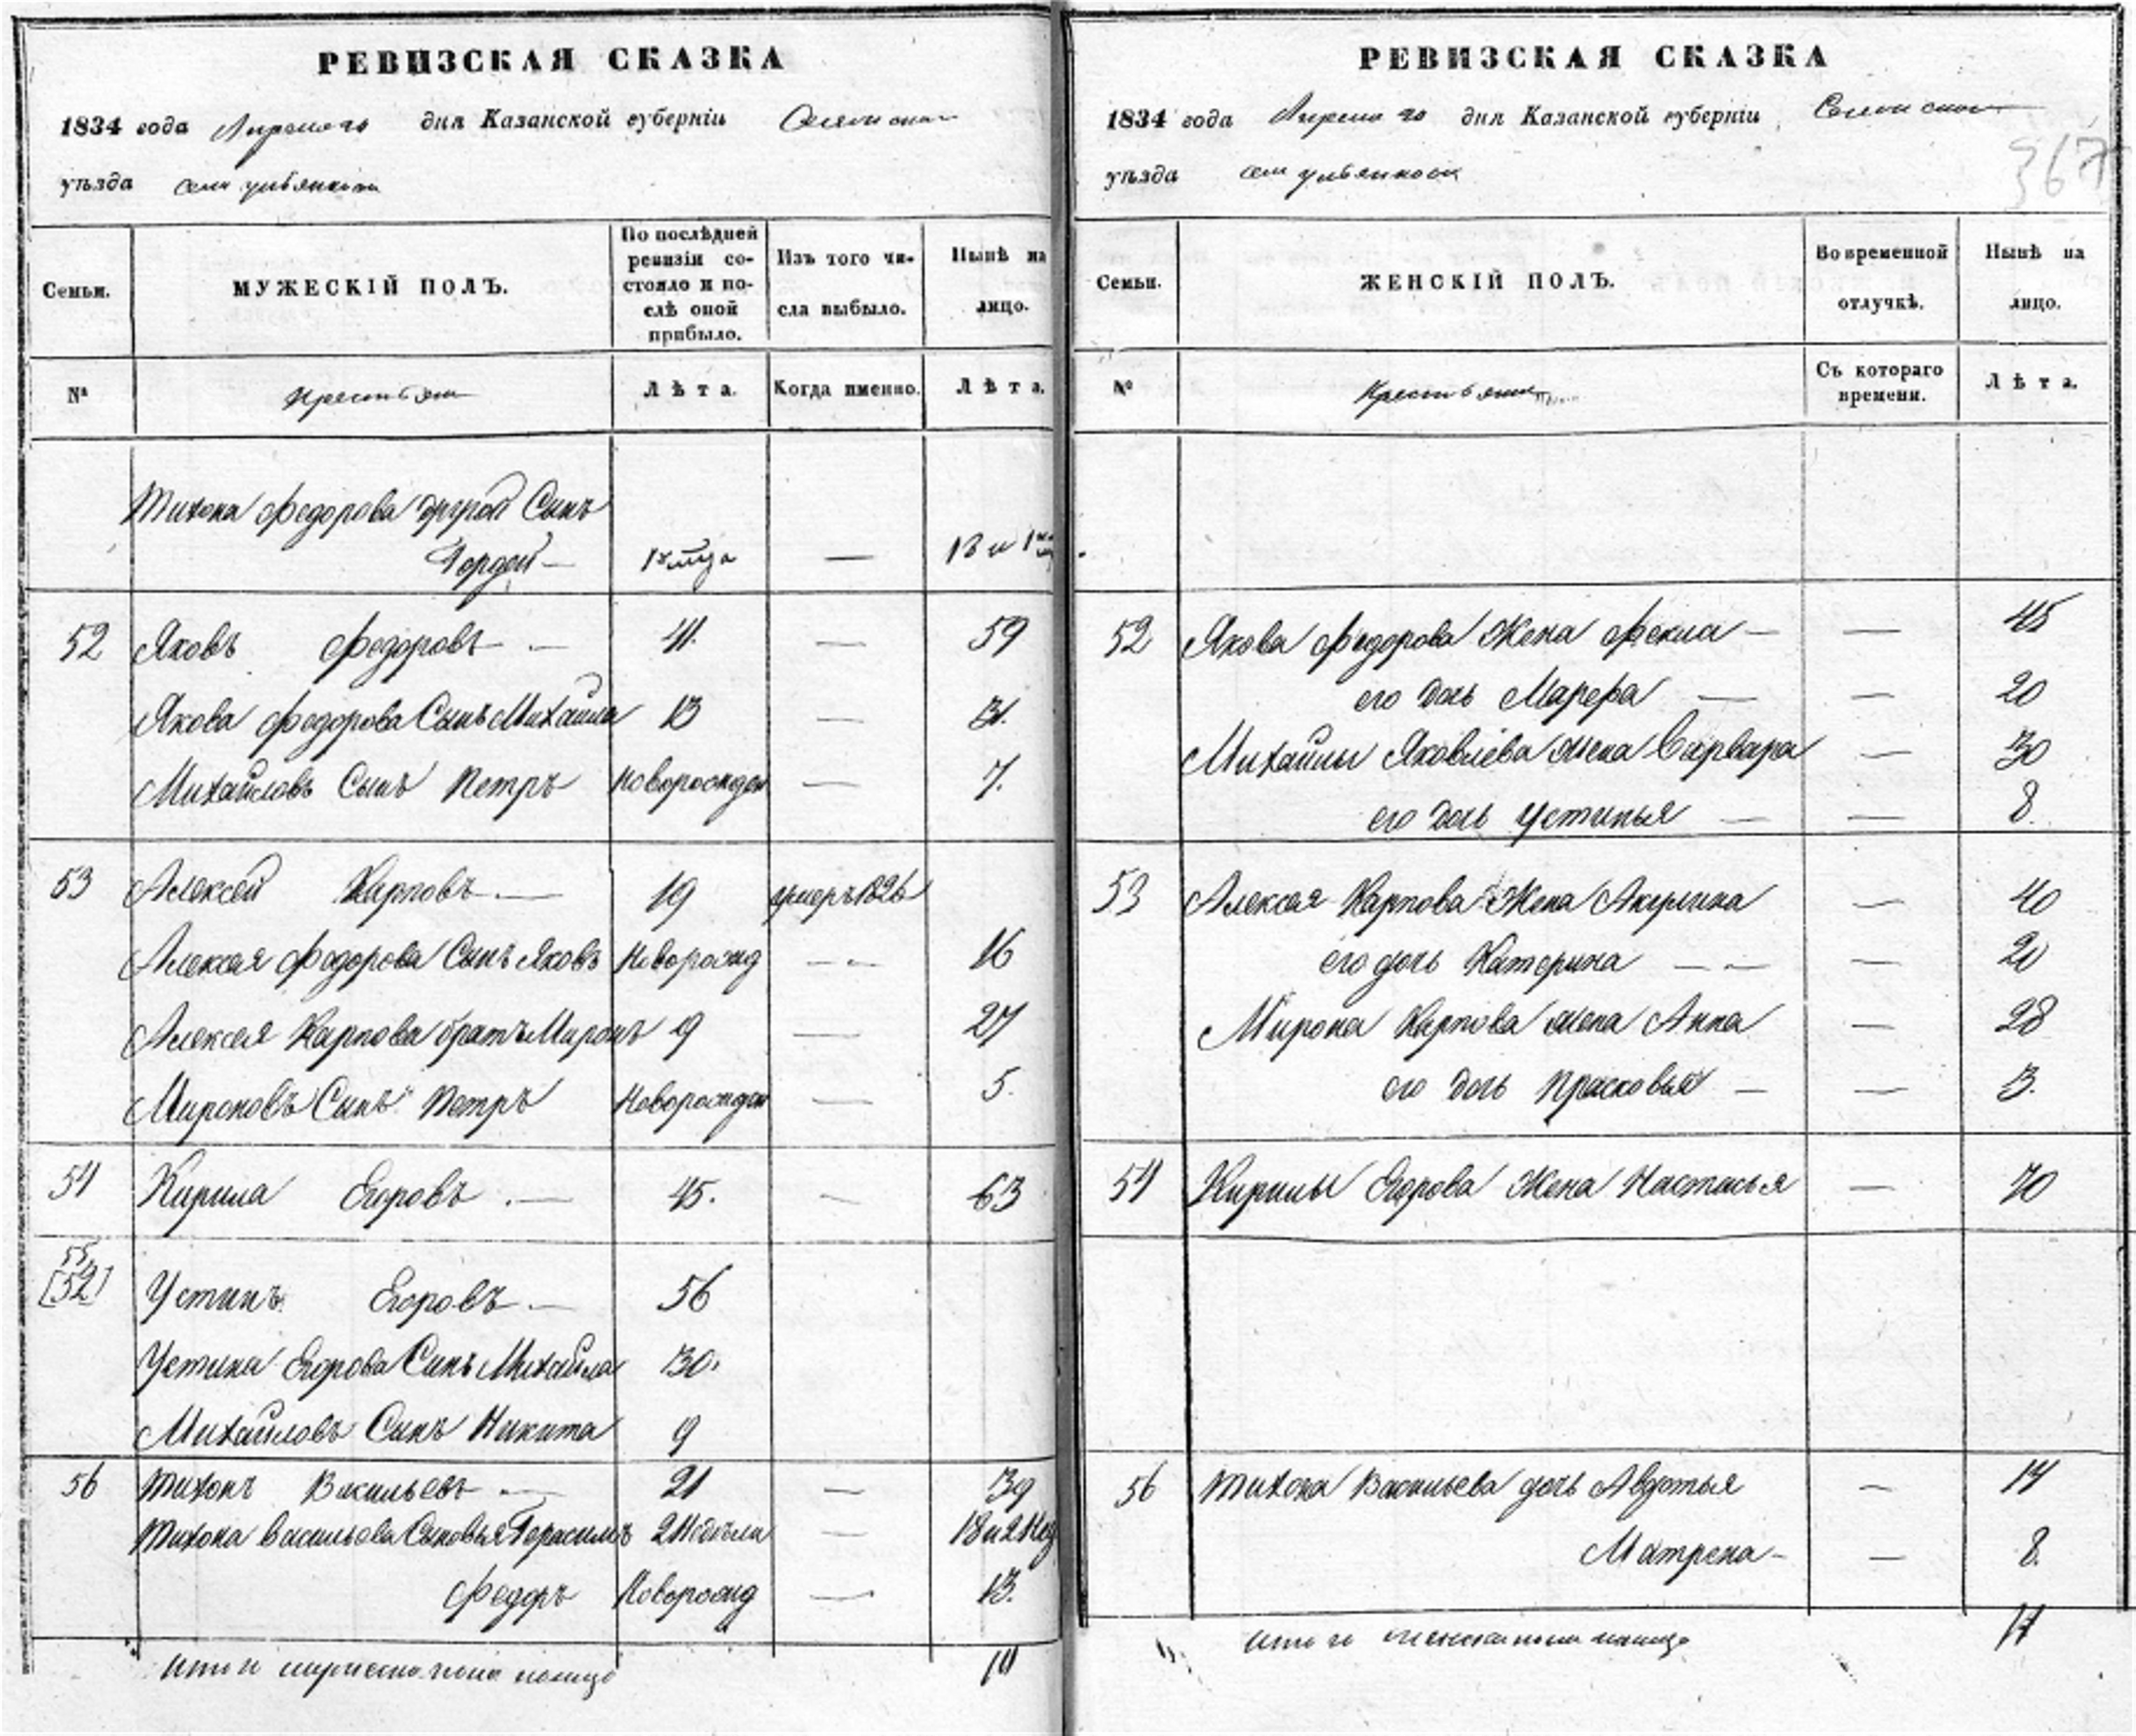 РЕВИЗСКАЯ СКАЗКА
1834 года Апреля дня Казанской губерніи
уѣзда села
Семьи.
МУЖЕСКІЙ ПОЛЪ.
По послѣдней ревизіи со-
стояло и по-
слѣ оной
прибыло.
Изъ того чи-
сла выбыло.
Нынѣ на
лицо.
№
Крестьяне
Лѣта.
Когда именно.
Лѣта.
Тихона Федорова другой Сынъ
Гордей —
52 Яковъ Федоровъ — 41. — 59
Якова Федорова Сынъ Михайла 13 — 31.
Михайловъ Сынъ Петръ Новорожден — 7.
53 Алексей Карповъ — 19 умеръ 1826
Алексея Федорова Сынъ Яковъ Новорожд — 16
Алексея Карпова братъ Миронъ 9 — 27
Мироновъ Сынъ Петръ Новорожден — 5.
54 Кирила Егоровъ — 45. — 63
55
[52] Устинъ Егоровъ — 56
Устина Егорова Сынъ Михайла 30.
Михайловъ Сынъ Никита 9
56 Тихонъ Васильевъ — 21 — 39
Тихона Васильева Сыновья Герасимъ 2 Недели — 18 и 2 Нед
Федоръ Новорожд — 13.
Итого мужеска пола налицо
РЕВИЗСКАЯ СКАЗКА
1834 года Апреля дня Казанской губерніи
уѣзда села
367
Семьи.
ЖЕНСКІЙ ПОЛЪ.
Во временной
отлучкѣ.
Нынѣ на
лицо.
№
Съ котораго
времени.
Лѣта.
52 Якова Федорова Жена Фекла — — 45
его дочь Марфа — — 20
Михайлы Яковлева жена Варвара — 30
его дочь Устинья — — 8.
53 Алексея Карпова Жена Акулина — 40
его дочь Катерина — — 20
Мирона Карпова жена Анна — 28
его дочь Прасковья — — 3.
54 Кирилы Егорова Жена Настасья — 70
56 Тихона Васильева дочь Авдотья — 14
Матрена — — 8.
Итого женска пола налицо 11